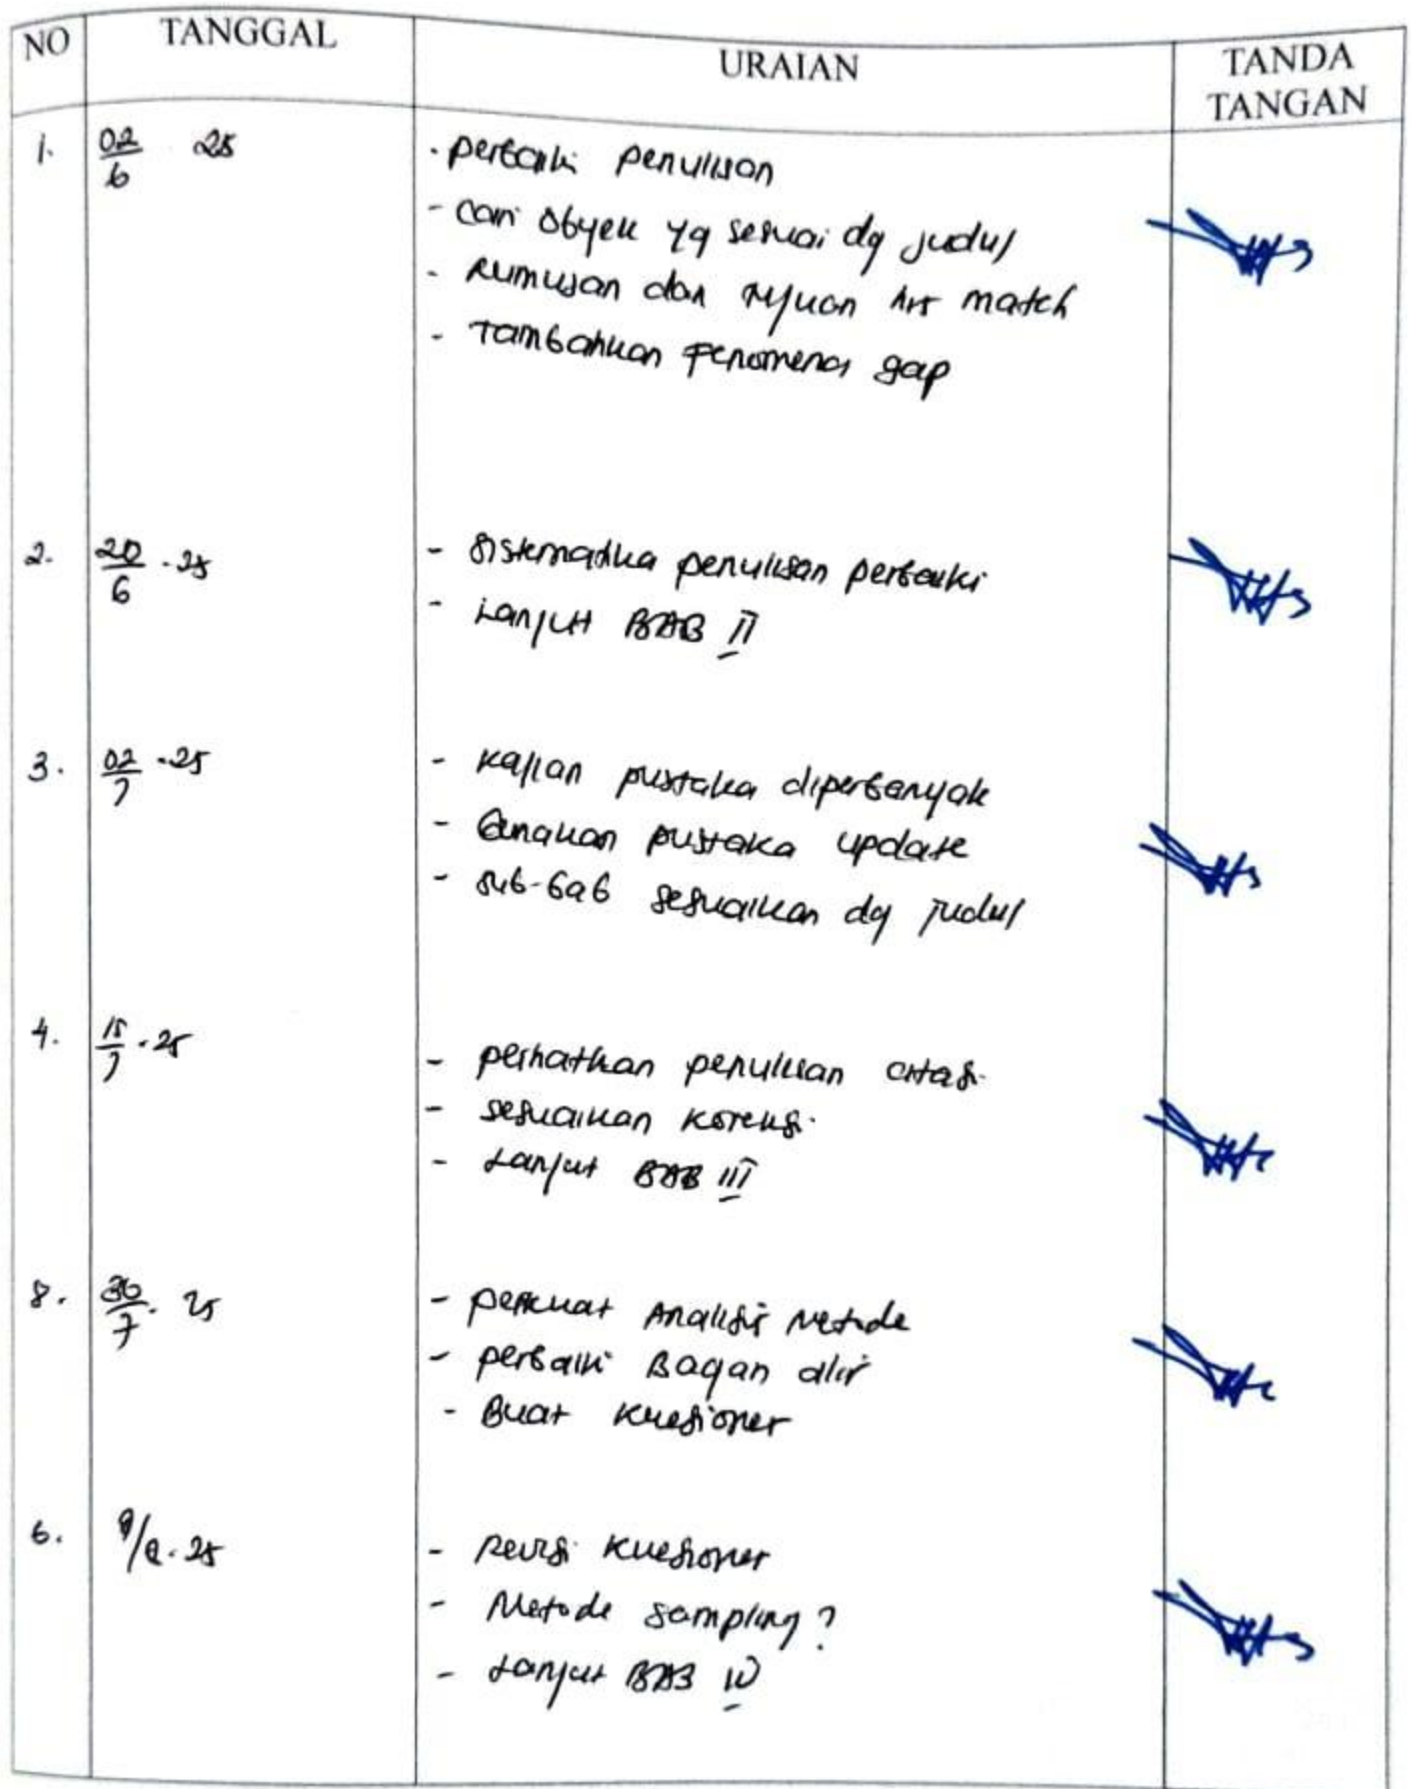 NO TANGGAL URAIAN TANDA TANGAN
1. 02/6 25 - perbaiki penulisan
- cari obyek yg sesuai dg judul
- Rumusan dan tujuan hrs match
- Tambahkan Fenomena gap
2. 20/6 - 25 - sistematika penulisan perbaiki
- Lanjut BAB II
3. 02/7 - 25 - Kajian pustaka diperbanyak
- Gunakan pustaka update
- sub-bab sesuaikan dg judul
4. 15/7 - 25 - perhatikan penulisan citasi.
- sesuaikan koreksi.
- Lanjut BAB III
5. 30/7 - 25 - perkuat Analisis Metode
- perbaiki Bagan alir
- Buat Kuesioner
6. 25 - Revisi Kuesioner
- Metode sampling?
- Lanjut BAB IV